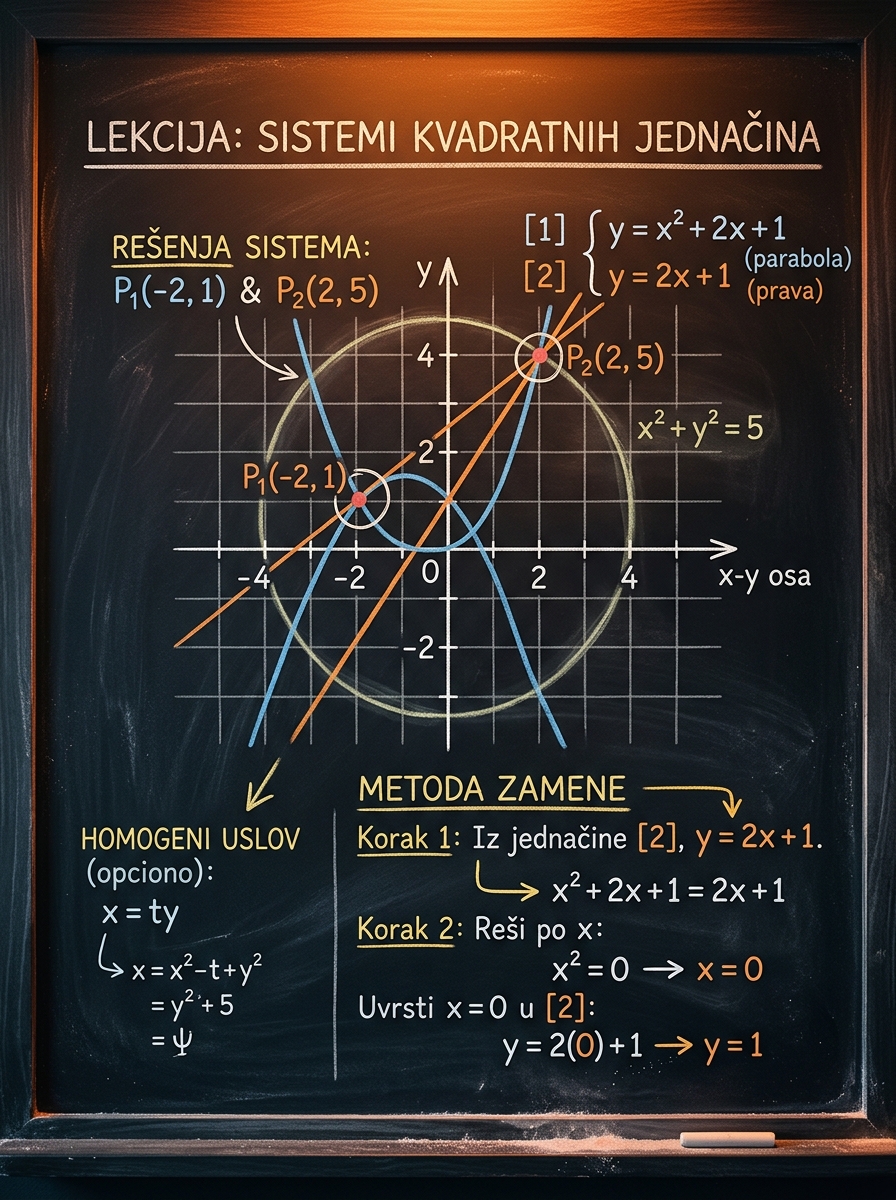 LEKCIJA: SISTEMI KVADRATNIH JEDNAČINA
REŠENJA SISTEMA:
P₁(-2, 1) & P₂(2, 5)
[1] { y = x² + 2x + 1
(parabola)
[2] { y = 2x + 1
(prava)
y
4
P₂(2, 5)
x² + y² = 5
2
P₁(-2, 1)
-4 -2 0 2 4
x-y osa
-2
HOMOGENI USLOV
(opciono):
x = ty
x = x² - t + y²
= y² + 5
= ψ
METODA ZAMENE
Korak 1: Iz jednačine [2], y = 2x + 1.
x² + 2x + 1 = 2x + 1
Korak 2: Reši po x:
x² = 0 → x = 0
Uvrsti x = 0 u [2]:
y = 2(0) + 1 → y = 1